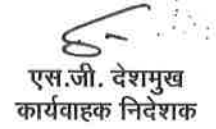 एस.जी. देशमुख
कार्यवाहक निदेशक